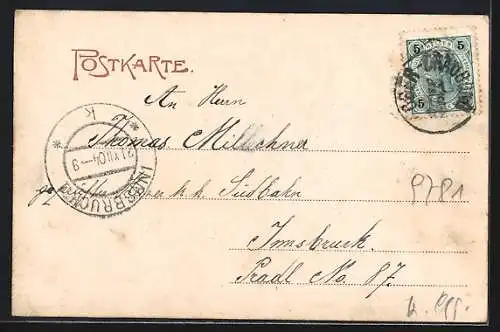 POSTKARTE.
5 5
5 5
An Herrn
Thomas Millechner
k. k. Südbahn
Innsbruck.
Pradl No. 87.
INNSBRUCK
21 XII 04-9
* K *
9781